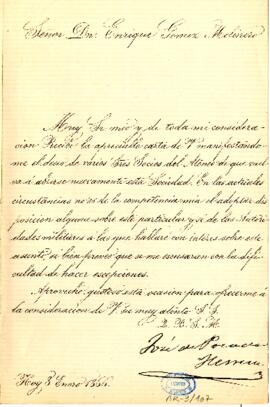 Señor Dn. Enrique Gomez Molinero
Muy Sr mio y de toda mi considera-
cion: Recibi la apreciable carta de V manifestando-
me el deseo de varios Sres Socios del Ateneo de que vuel-
va á abrirse nuevamente esta Sociedad. En las actuales
circustancias no es de la competencia mia el adoptar dis-
posicion alguna sobre este particular y si de las Autori-
dades militares á las que hablaré con interés sobre este
asunto, si bien preveo que se me escusaran con la difi-
cultad de hacer escepciones.
Aprovecho gustoso esta ocasión para ofrecerme á
la consideracion de V su muy atento S. S.
Q. B. S. M.
José de
Herrera
Hoy 8 Enero
AR-3/107